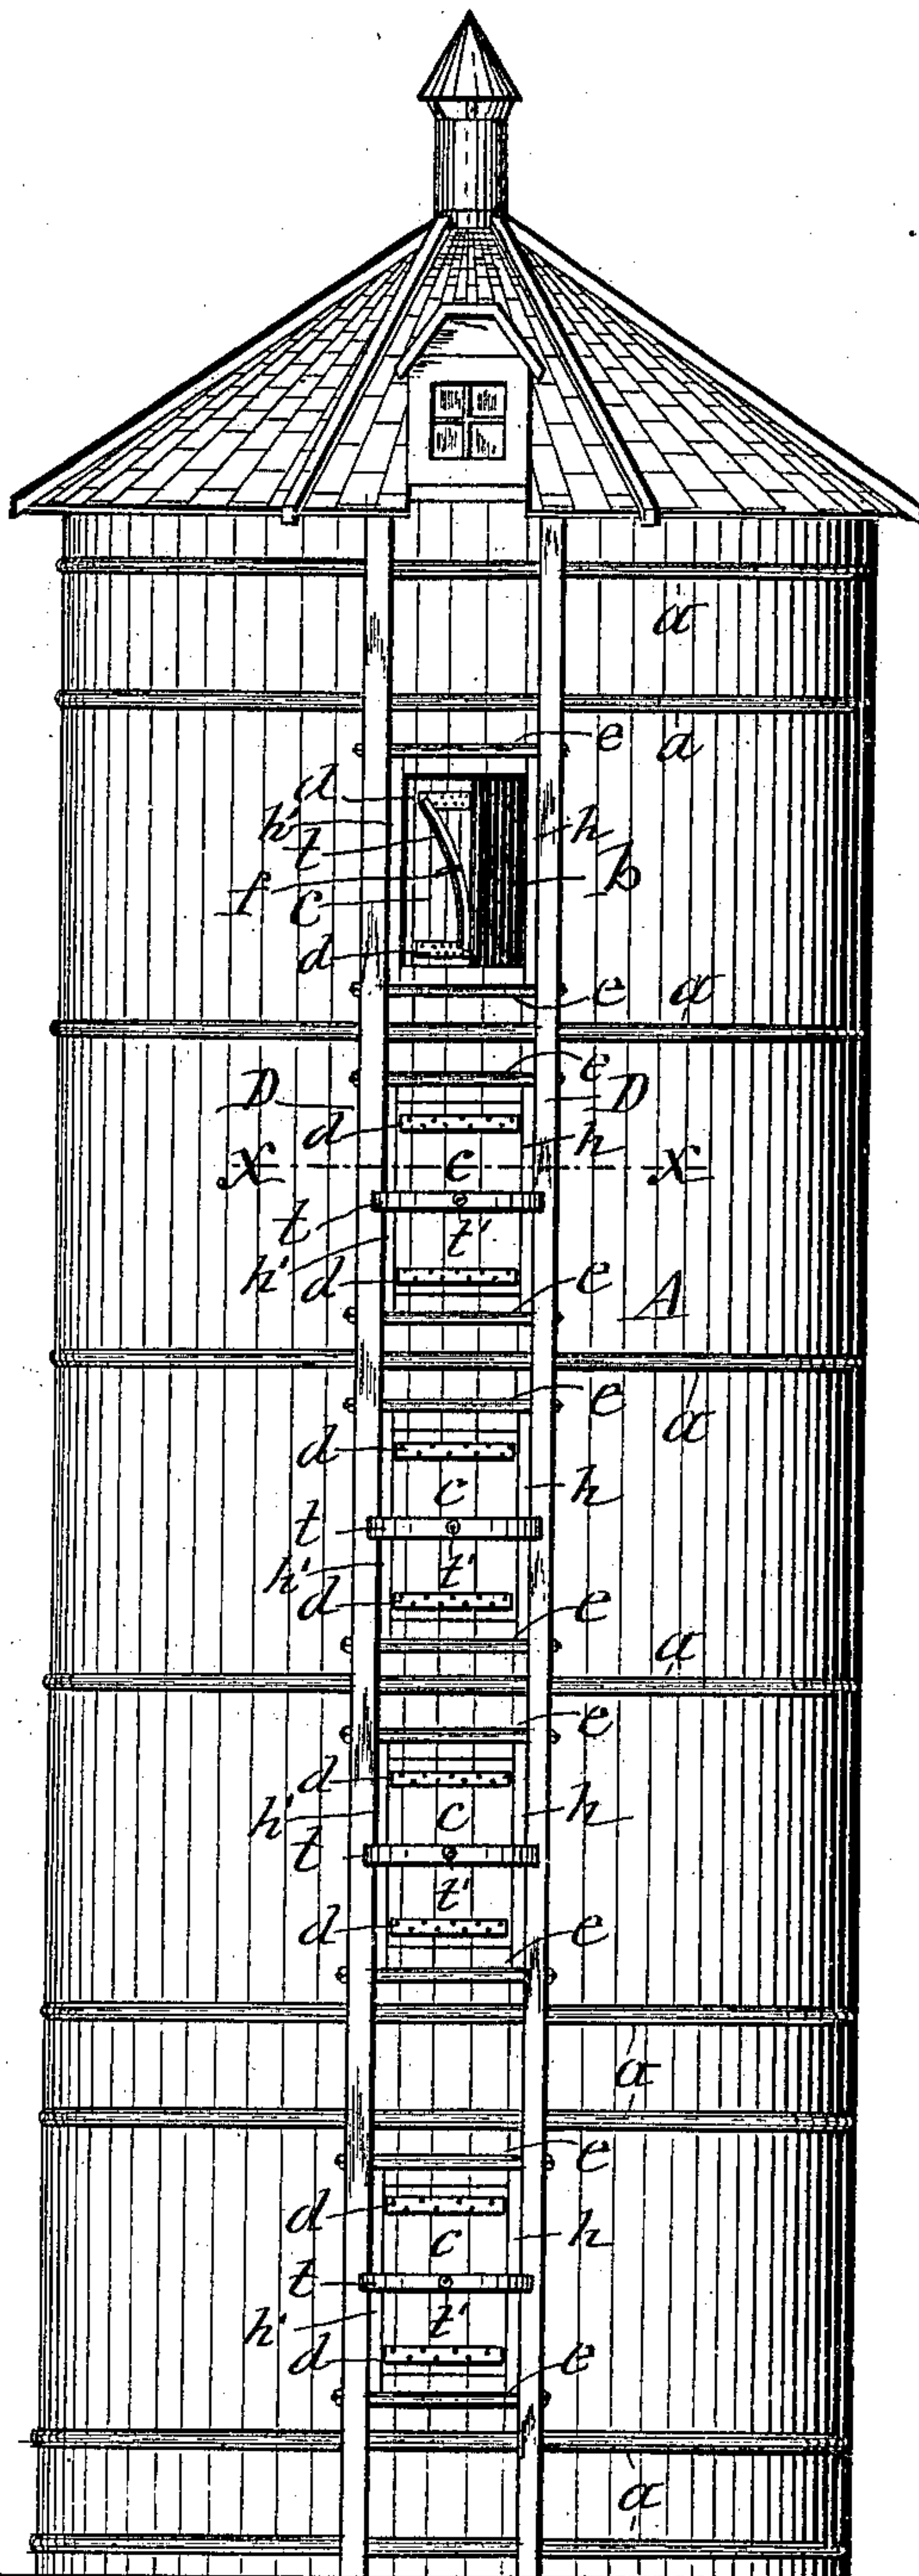 a
e
a
d
h'
h
t
b
f
c
d
e
a
e
D
D
d
h
c
X
X
t
t'
h'
d
e
A
e
a
d
c
h
t
h'
t'
d
e
a
e
d
c
h
h'
t
t'
d
e
a
e
d
c
h
t
t'
h'
d
e
a